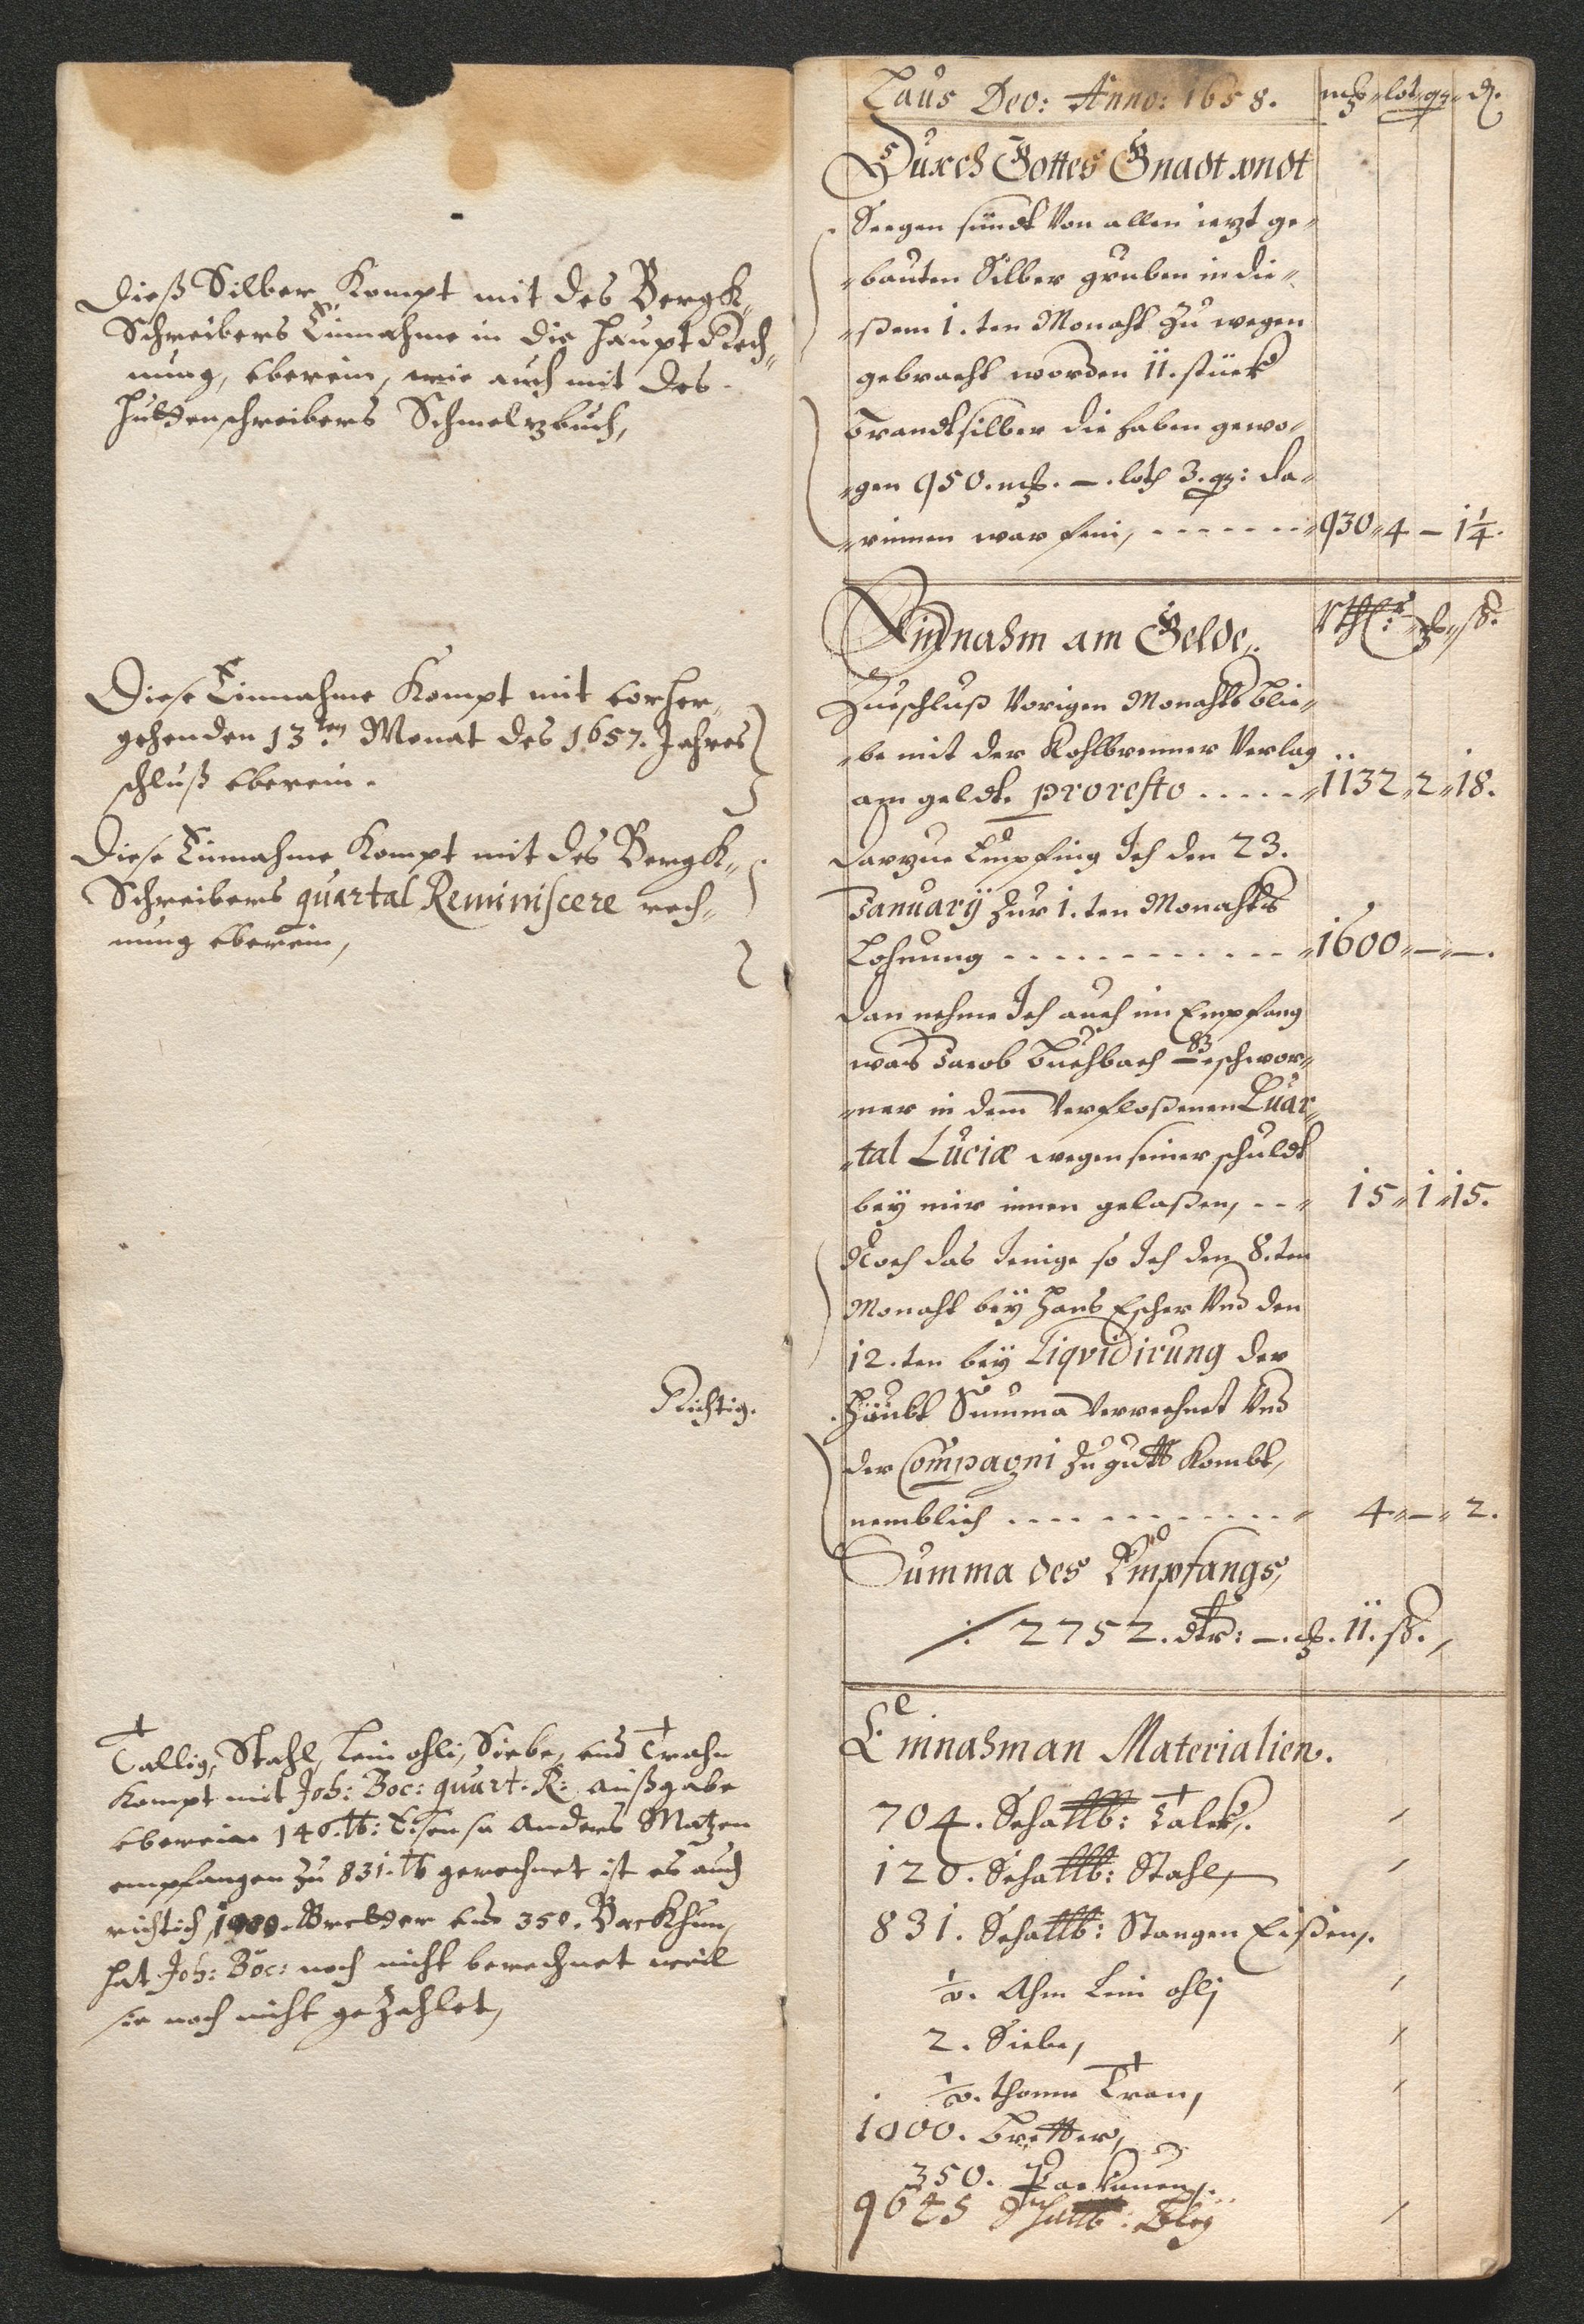 Dieß Silber Kompt mit des Bergk-
Schreibers Einnahme in die Haupt Rech-
nung, eberein, wie auch mit des
Hüttenschreibers Schmeltzbuch,
Diese Einnahme Kompt mit vorher-
gehenden 13ten Monat des 1657. Jahres
schluß eberein.
Diese Einnahme Kompt mit des Bergk-
Schreibers quartal Reminiscere rech-
nung eberein,
Richtig.
Tallig, Stahl, Lein ohli, Siebe, und Trahn
kompt mit Joh: Boc: quart. R: außgabe
eberein 140. lb: Eisen so Anders Matzen
empfangen zu 831. lb gerechnet ist es auch
richtich, 1000. Bretter und 350. Backhun,
hat Joh: Boc: noch nicht berechnet weil
sie noch nicht gezahlet,
Laus Deo: Anno: 1658. mk lot qz d.
Durch Gottes Gnadt vndt
Seegen sündt Von allen ietzt ge-
-bauten Silber gruben in die-
-ßem 1.ten Monaht zu wegen
gebracht worden 11. stück
Brandtsilber die haben gewo-
-gen 950. mk. —. loth 3. qz: da-
-rinnen war fein, - - - - - - - 930 „ 4 — 1 1/4.
Einnahm am Gelde. Rthlr: mk ß.
Zueschluß Vorigen Monahts blie-
-be mit der Kohlbrenner Verlag
am geldt. pro resto . . . . . 1132 „ 2 „ 18.
Darzue Empfing Ich den 23.
January Zur 1.ten Monahts
Lohnung . . . . . . . . . . . . 1600 „ — „ —.
Dan nehme Ich auch im Empfang
was Jacob Buchbach Geschwor-
-ner in dem Verfloßenen Quar-
-tal Luciæ wegen seiner schuldt
bey mir innen gelaßen, - - „ 15 „ 1 „ 15.
Noch das Jenige so Ich den 8.ten
Monaht bey Hans Escher Und den
12.ten bey Liqvidirung der
Häubt Summa Verrechnet Und
der Compagni Zu gutt Kombt,
nemblich . . . . . . . . . . . „ 4 „ — „ 2.
Summa des Empfangs,
⁒ 2752. dlr: —. mk. 11. ß.,
Einnahm an Materialien.
704. Schallb: Talck.
120. Schallb: Stahl,
831. Schallb: Stangen Eißen.
1/2. Ahm Lein ohlj
2. Siebe,
1/2. thonne Tran,
1000. Bretter,
350. Backunen,
9625 Schallb: Bley